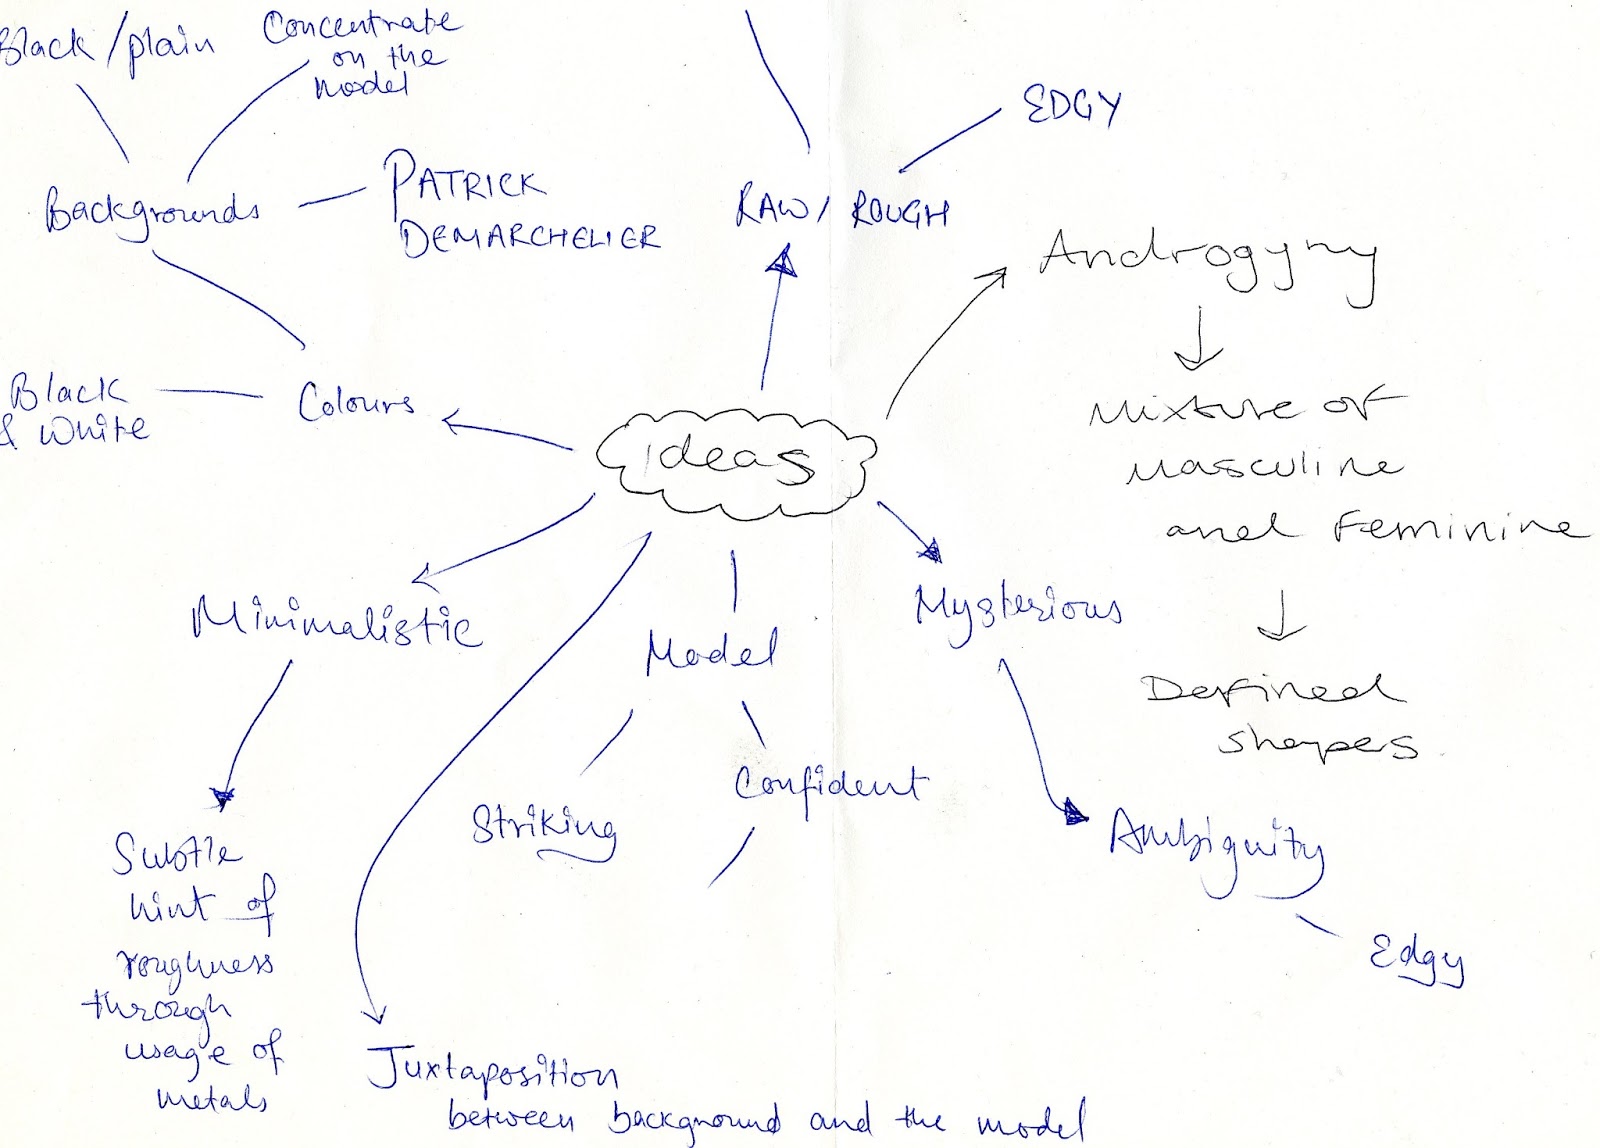 Black/plain
Concentrate
on the
model
EDGY
Backgrounds
PATRICK
DEMARCHELIER
RAW/ ROUGH
Androgyny
Black
& White
Colours
Ideas
Mixture of
masculine
and feminine
Minimalistic
Model
Mysterious
Defined
shapes
Striking
Confident
Ambiguity
Edgy
Subtle
hint of
roughness
through
usage of
metals
Juxtaposition
between background and the model